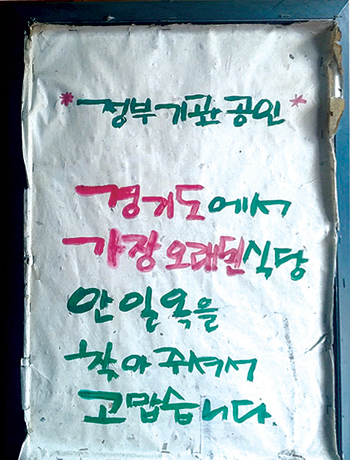 *정부기관 공인*
경기도에서
가장 오래된 식당
안일옥을
찾아주셔서
고맙습니다